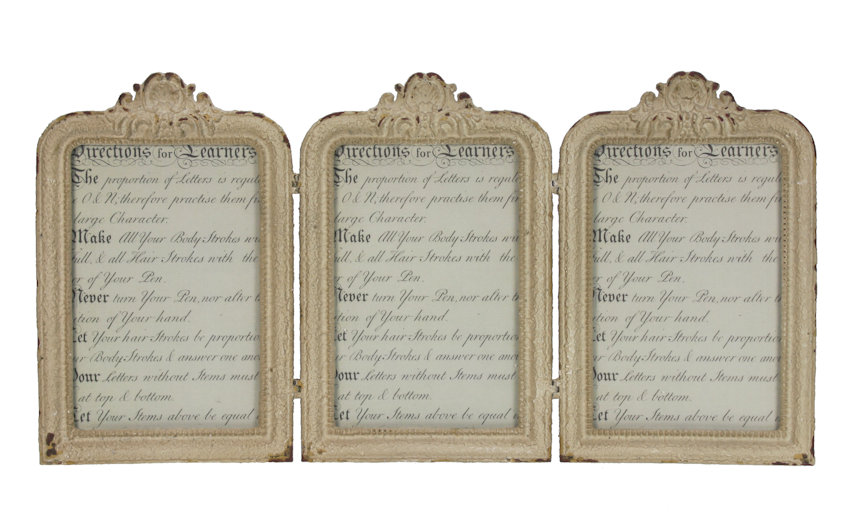 Directions for Learners
The proportion of Letters is regul
O & N, therefore practise them
large Character.
Make All Your Body Strokes
full, & all Hair Strokes with the
of Your Pen.
Never turn Your Pen, nor alter
of Your hand.
Let Your hair Strokes be proportion
Your Body Strokes & answer one
Letters without Items must
at top & bottom.
Let Your Items above be equal
Directions for Learners
The proportion of Letters is regul
O & N, therefore practise them
large Character.
Make All Your Body Strokes
full, & all Hair Strokes with the
of Your Pen.
Never turn Your Pen, nor alter
of Your hand.
Let Your hair Strokes be proportion
Your Body Strokes & answer one
Letters without Items must
at top & bottom.
Let Your Items above be equal
Directions for Learners
The proportion of Letters is regul
O & N, therefore practise them
large Character.
Make All Your Body Strokes
full, & all Hair Strokes with the
of Your Pen.
Never turn Your Pen, nor alter
of Your hand.
Let Your hair Strokes be proportion
Your Body Strokes & answer one
Letters without Items must
at top & bottom.
Let Your Items above be equal